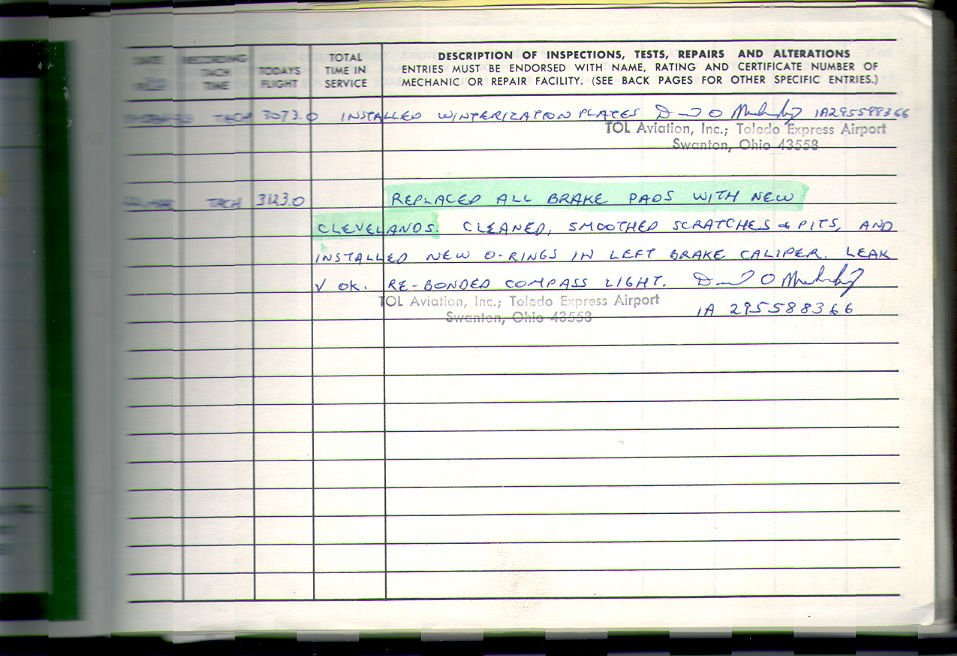 DATE RECORDING TACH TIME TODAYS FLIGHT TOTAL TIME IN SERVICE
DESCRIPTION OF INSPECTIONS, TESTS, REPAIRS AND ALTERATIONS
ENTRIES MUST BE ENDORSED WITH NAME, RATING AND CERTIFICATE NUMBER OF
MECHANIC OR REPAIR FACILITY. (SEE BACK PAGES FOR OTHER SPECIFIC ENTRIES.)
TACH 3073.0 INSTALLED WINTERIZATION PLATES IA295588366
TOL Aviation, Inc.; Toledo Express Airport
Swanton, Ohio 43558
TACH 3123.0 REPLACED ALL BRAKE PADS WITH NEW
CLEVELANDS. CLEANED, SMOOTHED SCRATCHES & PITS, AND
INSTALLED NEW O-RINGS IN LEFT BRAKE CALIPER. LEAK
√ OK. RE-BONDED COMPASS LIGHT.
TOL Aviation, Inc.; Toledo Express Airport
Swanton, Ohio 43558
IA 295588366